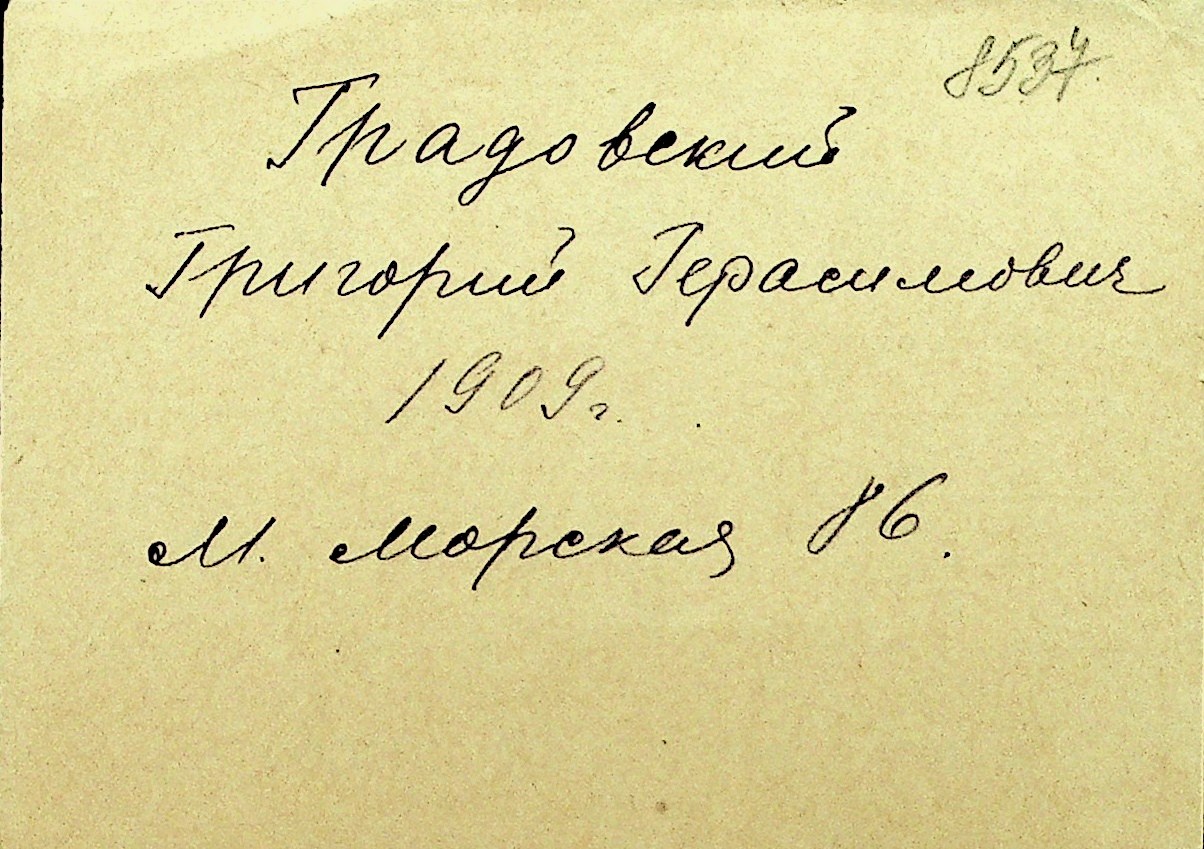 Градовский
Григорий Герасимович
1909 г.
М. Морская 86.